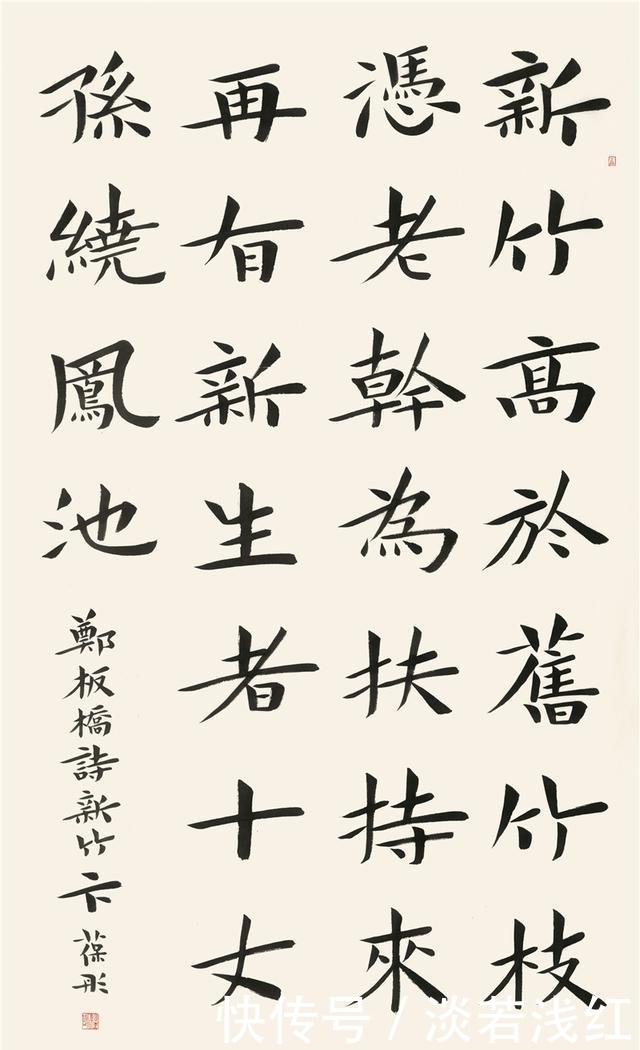 新竹髙於舊竹枝
憑老幹為扶持來
再有新生者十丈
孫繞鳳池
鄭板橋詩新竹卞葆彤
快传号/淡若浅红